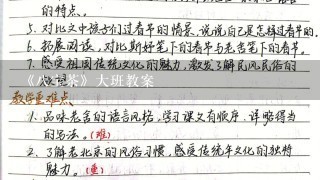 的特点。
5. 对比文中孩子们过春节的情景,说说自己是怎样过春节的。
6. 拓展阅读,对比斯妤笔下的春节与老舍笔下的春节。
7. 感受祖国传统文化的魅力,激发了解民风民俗的
《八宝茶》大班教案
教学重难点、
1. 品味老舍的语言风格,学习课文有顺序、详略得当
的写法。(难)
2. 了解老北京的风俗习惯,感受传统年文化的独特
魅力。(重)